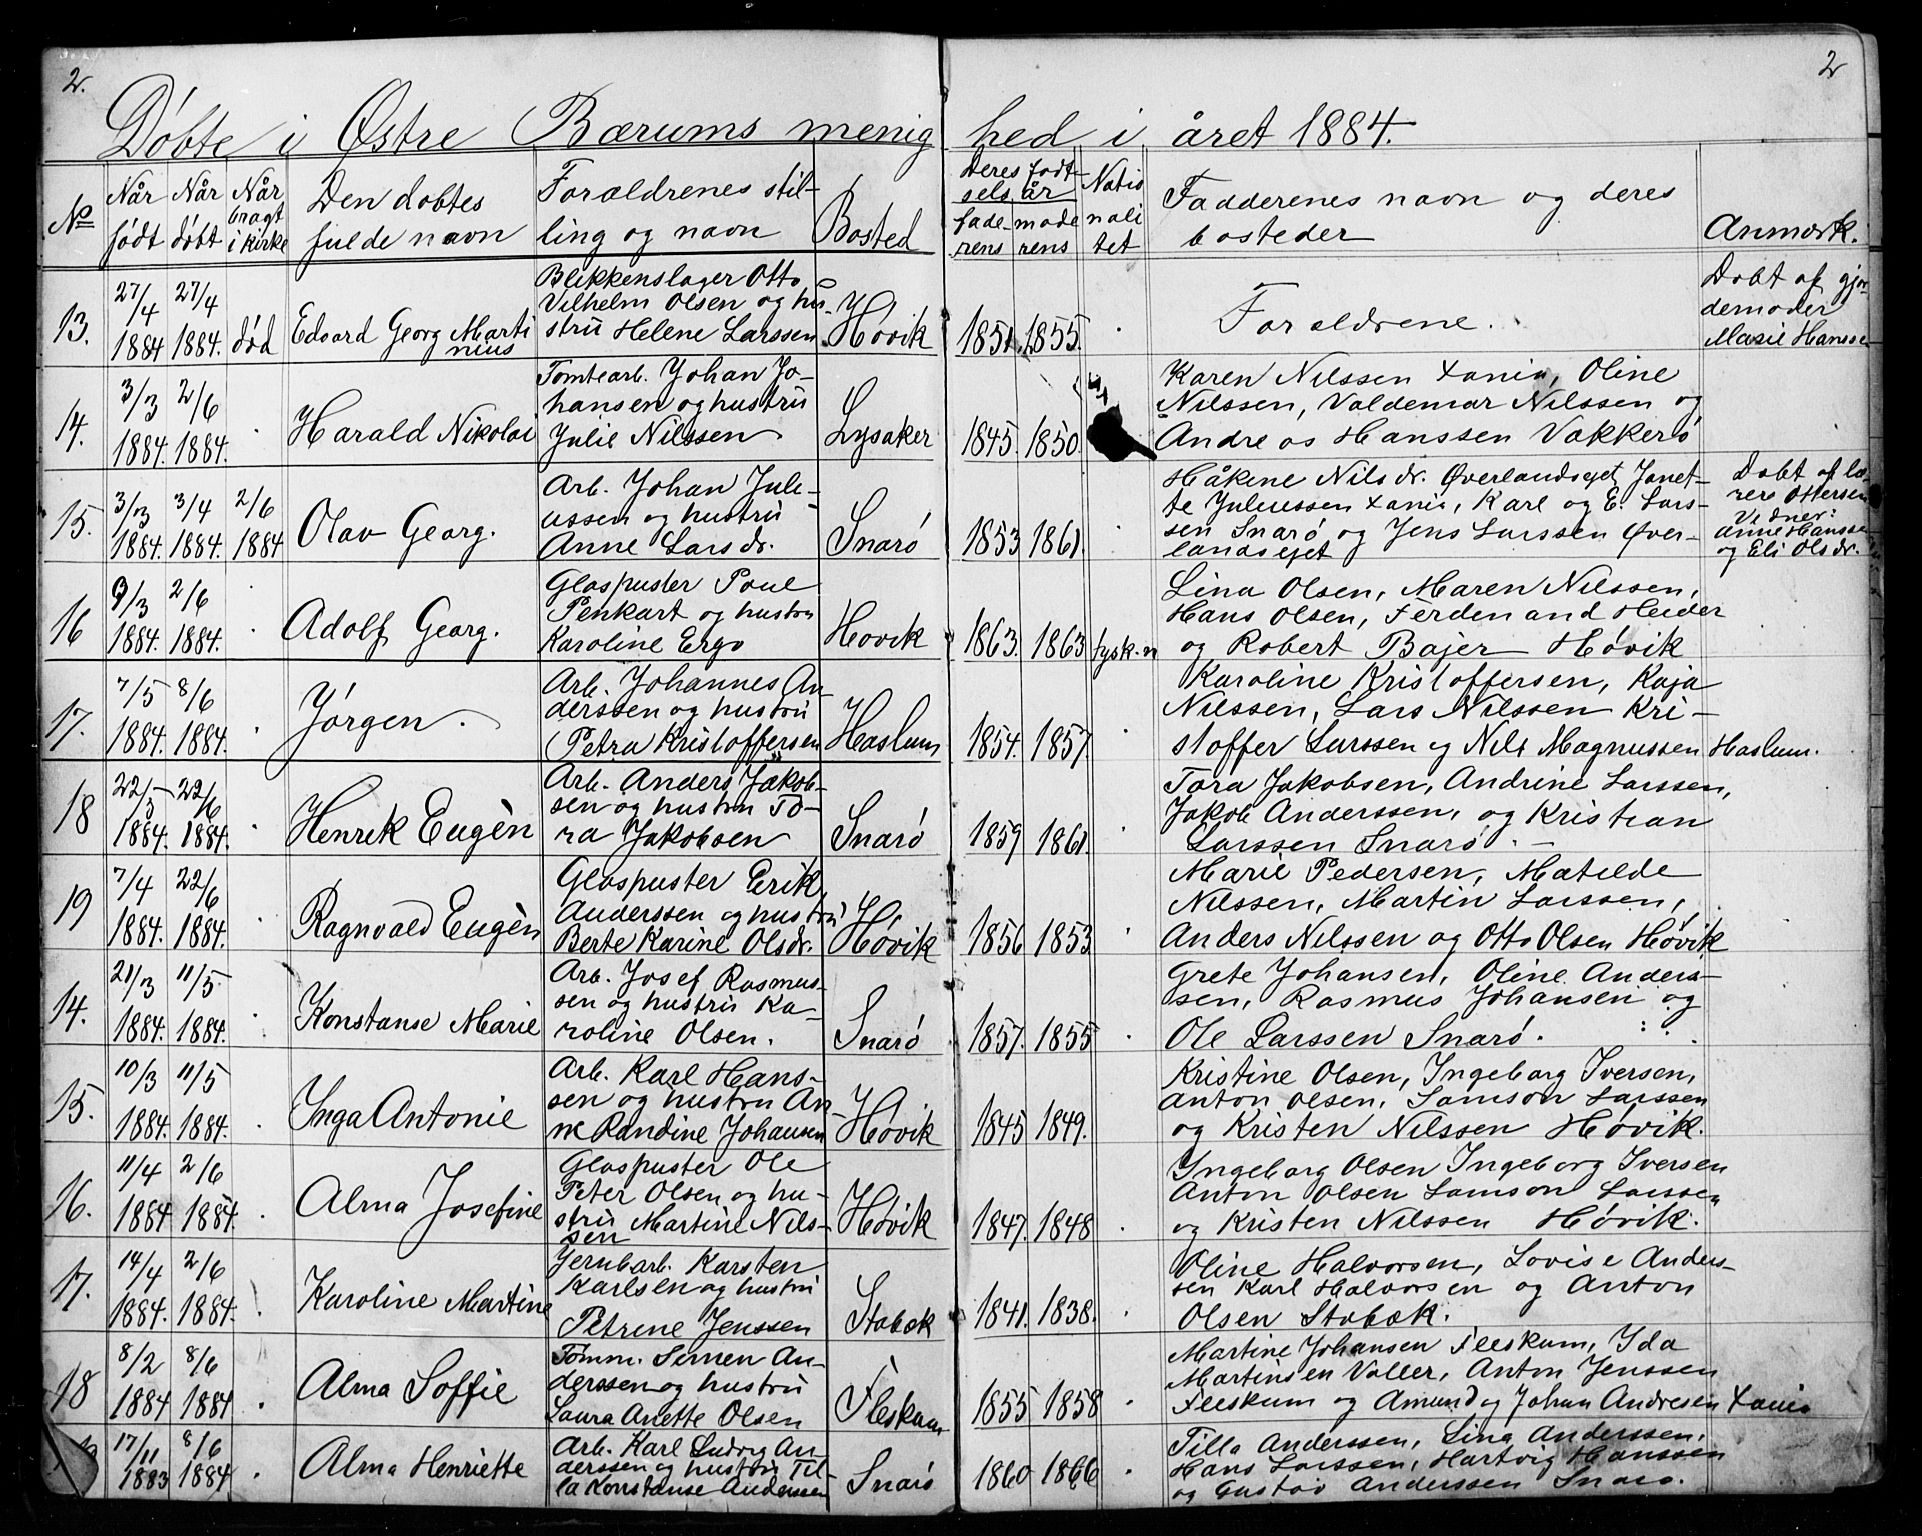 2.
2
Döbte i Østre Bærums menig
hed i året 1884.
No
Når
født
Når
døbt
Når
bragt
i kirke
Den døbtes
fulde navn
Forældrenes stil-
ling og navn
Bosted
Deres født-
sels år
fade-
rens
mode
rens
Natio
nali
tet
Faddernes navn og deres
bosteder
Anmærk.
13.
27/4
1884
27/4
1884.
død
Edvard Georg Marti
nius
Blikkenslager Otto
Vilhelm Olsen og hu-
stru Helene Larssen
Høvik
1851.
1855.
Forældrene.
Døbt af gjor-
demoder
Marie Hanssen
14.
3/3
1884.
2/6
1884.
Harald Nikolai
Tomtearb. Johan Jo-
hansen og hustru
Julie Nilssen
Lysaker
1845.
1850.
Karen Nilssen Xania, Oline
Nilssen, Valdemar Nilssen og
Andreas Hanssen Vækkerø
15.
3/3
1884.
3/4
1884.
2/6
1884
Olav Georg.
Arb. Johan Juli-
ussen og hustru
Anne Larsdr.
Snarø
1853
1861.
Håkene Nilsdr. Øverlandsejet Janet-
te Juliussen Xania, Karl og E. Lars-
sen Snarø og Jens Larssen Øver-
landsejet
Døbt af læ-
rere Ottersen
Vidner:
Anne Hanssen
og Eli Olsdr.
16
9/3
1884.
2/6
1884.
Adolf Georg.
Glaspuster Paul
Penkart og hustru
Karoline Ergo
Høvik
1863.
1863
tysk.
Lina Olsen, Maren Nilssen,
Hans Olsen, Ferdenand Heider
og Robert Bajer Høvik
17.
7/5
1884.
8/6
1884.
Jørgen.
Arb. Johannes An-
derssen og hustru
Petra Kristoffersen
Haslum
1854.
1857.
Karoline Kristoffersen, Kaja
Nilssen, Lars Nilssen Kri-
stoffer Larssen og Nils Magnussen Haslum.
18
22/5
1884.
22/6
1884.
Henrik Eugèn
Arb. Anders Jakob-
sen og hustru To-
ra Jakobsen
Snarø
1859
1861.
Tora Jakobsen, Andrine Larssen,
Jakob Anderssen, og Kristian
Larssen Snarø.
19
7/4
1884.
22/6
1884.
Ragnvald Eugèn
Glaspuster Erik
Anderssen og hustru
Berte Karine Olsdr.
Høvik
1856
1853
Marie Pedersen, Matilde
Nilssen, Martin Larssen,
Anders Nilssen og Otto Olsen Høvik
14.
21/3
1884.
11/5.
1884.
Konstanse Marie
Arb. Josef Rasmus-
sen og hustru Ka-
roline Olsen.
Snarø
1857.
1855
Grete Johansen, Oline Anders-
sen, Rasmus Johansen og
Ole Larssen Snarø.
15.
10/3
1884.
11/5
1884.
Inga Antonie
Arb. Karl Hans-
sen og hustru An-
ne Randine Johansen
Høvik
1845
1849.
Kristine Olsen, Ingeborg Iversen,
Anton Olsen, Samson Larssen
og Kristen Nilssen Høvik.
16.
11/4
1884
2/6
1884.
Alma Josefine
Glaspuster Ole
Peter Olsen og hu-
stru Martine Nils-
sen
Høvik
1847.
1848
Ingeborg Olsen Ingeborg Iversen
Anton Olsen Samson Larssen
og Kristen Nilssen Høvik.
17.
14/4
1884.
2/6
1884.
Karoline Martine
Jernbarb. Karsten
Karlsen og hustru
Petrine Jenssen
Stabæk
1841.
1838.
Oline Halvorsen, Lovise Anders-
sen Karl Halvorsen og Anton
Olsen Stabæk.
18
8/2
1884
8/6
1884
Alma Soffie
Tømm. Simen An-
derssen og hustru
Laura Anette Olsen
Fleskum
1855
1858
Martine Johansen Fleskum, Ida
Martinsen Voller, Anton Jenssen
Fleskum og Amund og Johan Andresen Xania
17/11
1883
8/6
1884
Alma Henriette
Arb. Karl Ludvig An-
derssen og hustru Til-
la Konstanse Anderssen
Snarø
1860
1866
Tilla Anderssen, Lina Anderssen,
Hans Larssen, Hartvig Hanssen
og Gustav Anderssen Snarø.